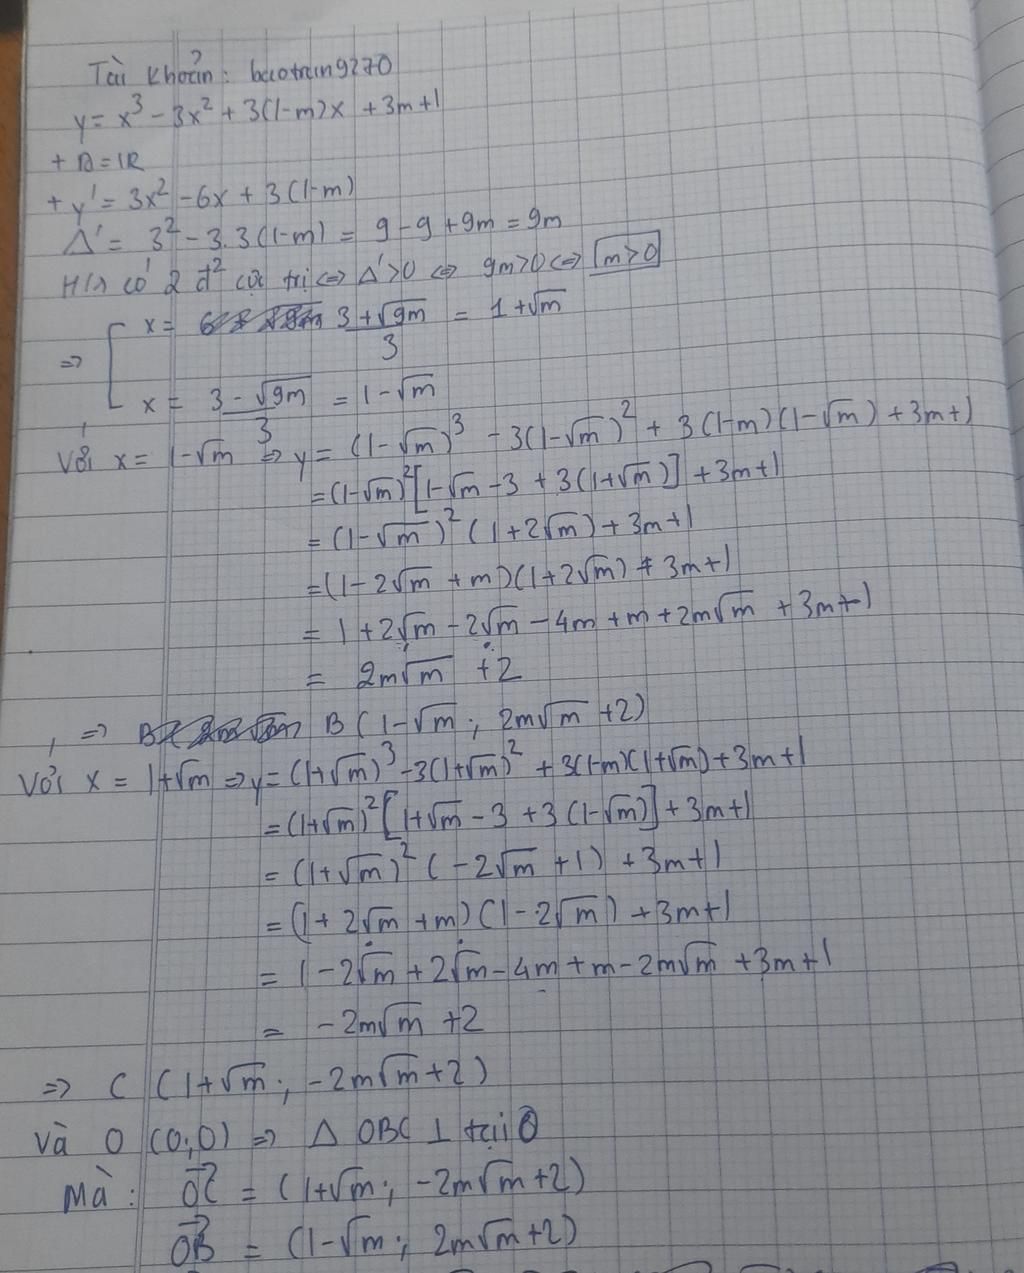 Tài khoản: baotran9270
y = x³ - 3x² + 3(1-m)x + 3m+1
+ D = IR
+ y' = 3x² - 6x + 3(1-m)
Δ' = 3² - 3.3(1-m) = 9 - 9 + 9m = 9m
H/s có 2 đ² cực trị ⇔ Δ' > 0 ⇔ 9m > 0 ⇔ m > 0
⇒ [ x = (3 + √9m)/3 = 1 + √m
x = (3 - √9m)/3 = 1 - √m
Với x = 1-√m ⇒ y = (1-√m)³ - 3(1-√m)² + 3(1-m)(1-√m) + 3m+1
= (1-√m)²[1-√m - 3 + 3(1+√m)] + 3m+1
= (1-√m)² (1+2√m) + 3m+1
= (1 - 2√m + m)(1+2√m) + 3m+1
= 1 + 2√m - 2√m - 4m + m + 2m√m + 3m+1
= 2m√m + 2
⇒ B (1-√m ; 2m√m + 2)
Với x = 1+√m ⇒ y = (1+√m)³ - 3(1+√m)² + 3(1-m)(1+√m) + 3m+1
= (1+√m)² [1+√m - 3 + 3(1-√m)] + 3m+1
= (1+√m)² (-2√m + 1) + 3m+1
= (1 + 2√m + m)(1 - 2√m) + 3m+1
= 1 - 2√m + 2√m - 4m + m - 2m√m + 3m+1
= -2m√m + 2
⇒ C (1+√m ; -2m√m+2)
Và O (0;0) ⇒ Δ OBC ⊥ tại O
Mà: OC = (1+√m ; -2m√m+2)
OB = (1-√m ; 2m√m+2)